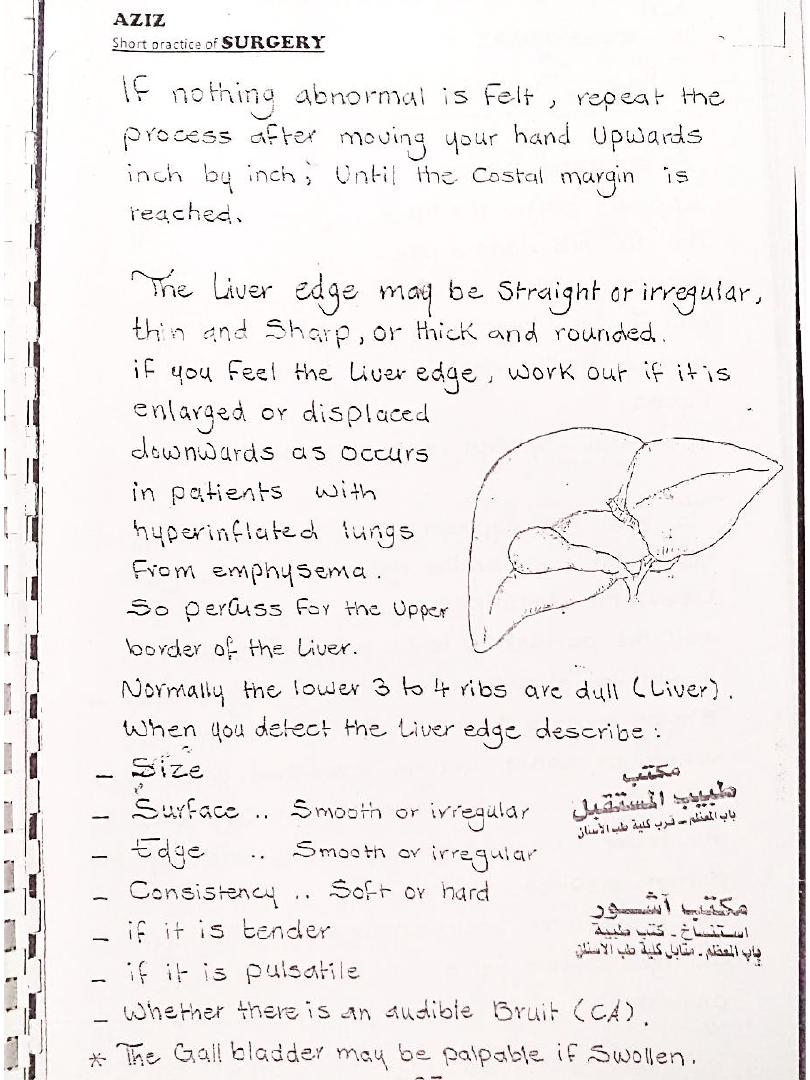 AZIZ
Short practice of SURGERY
If nothing abnormal is Felt, repeat the
process after moving your hand Upwards
inch by inch; Until the Costal margin is
reached.
The Liver edge may be Straight or irregular,
thin and Sharp, or thick and rounded.
if you Feel the Liver edge, work out if it is
enlarged or displaced
downwards as occurs
in patients with
hyperinflated lungs
From emphysema.
So percuss For the Upper
border of the Liver.
Normally the lower 3 to 4 ribs are dull (Liver).
When you detect the Liver edge describe:
_ Size
_ Surface .. Smooth or irregular
_ Edge .. Smooth or irregular
_ Consistency .. Soft or hard
_ if it is tender
_ if it is pulsatile
_ Whether there is an audible Bruit (CA).
* The Gall bladder may be palpable if Swollen.
مكتب
طبيب المستقبل
باب المعظم - قرب كلية طب الأسنان
مكتب آشور
استنساخ - كتب طبية
باب المعظم - مقابل كلية طب الاسنان